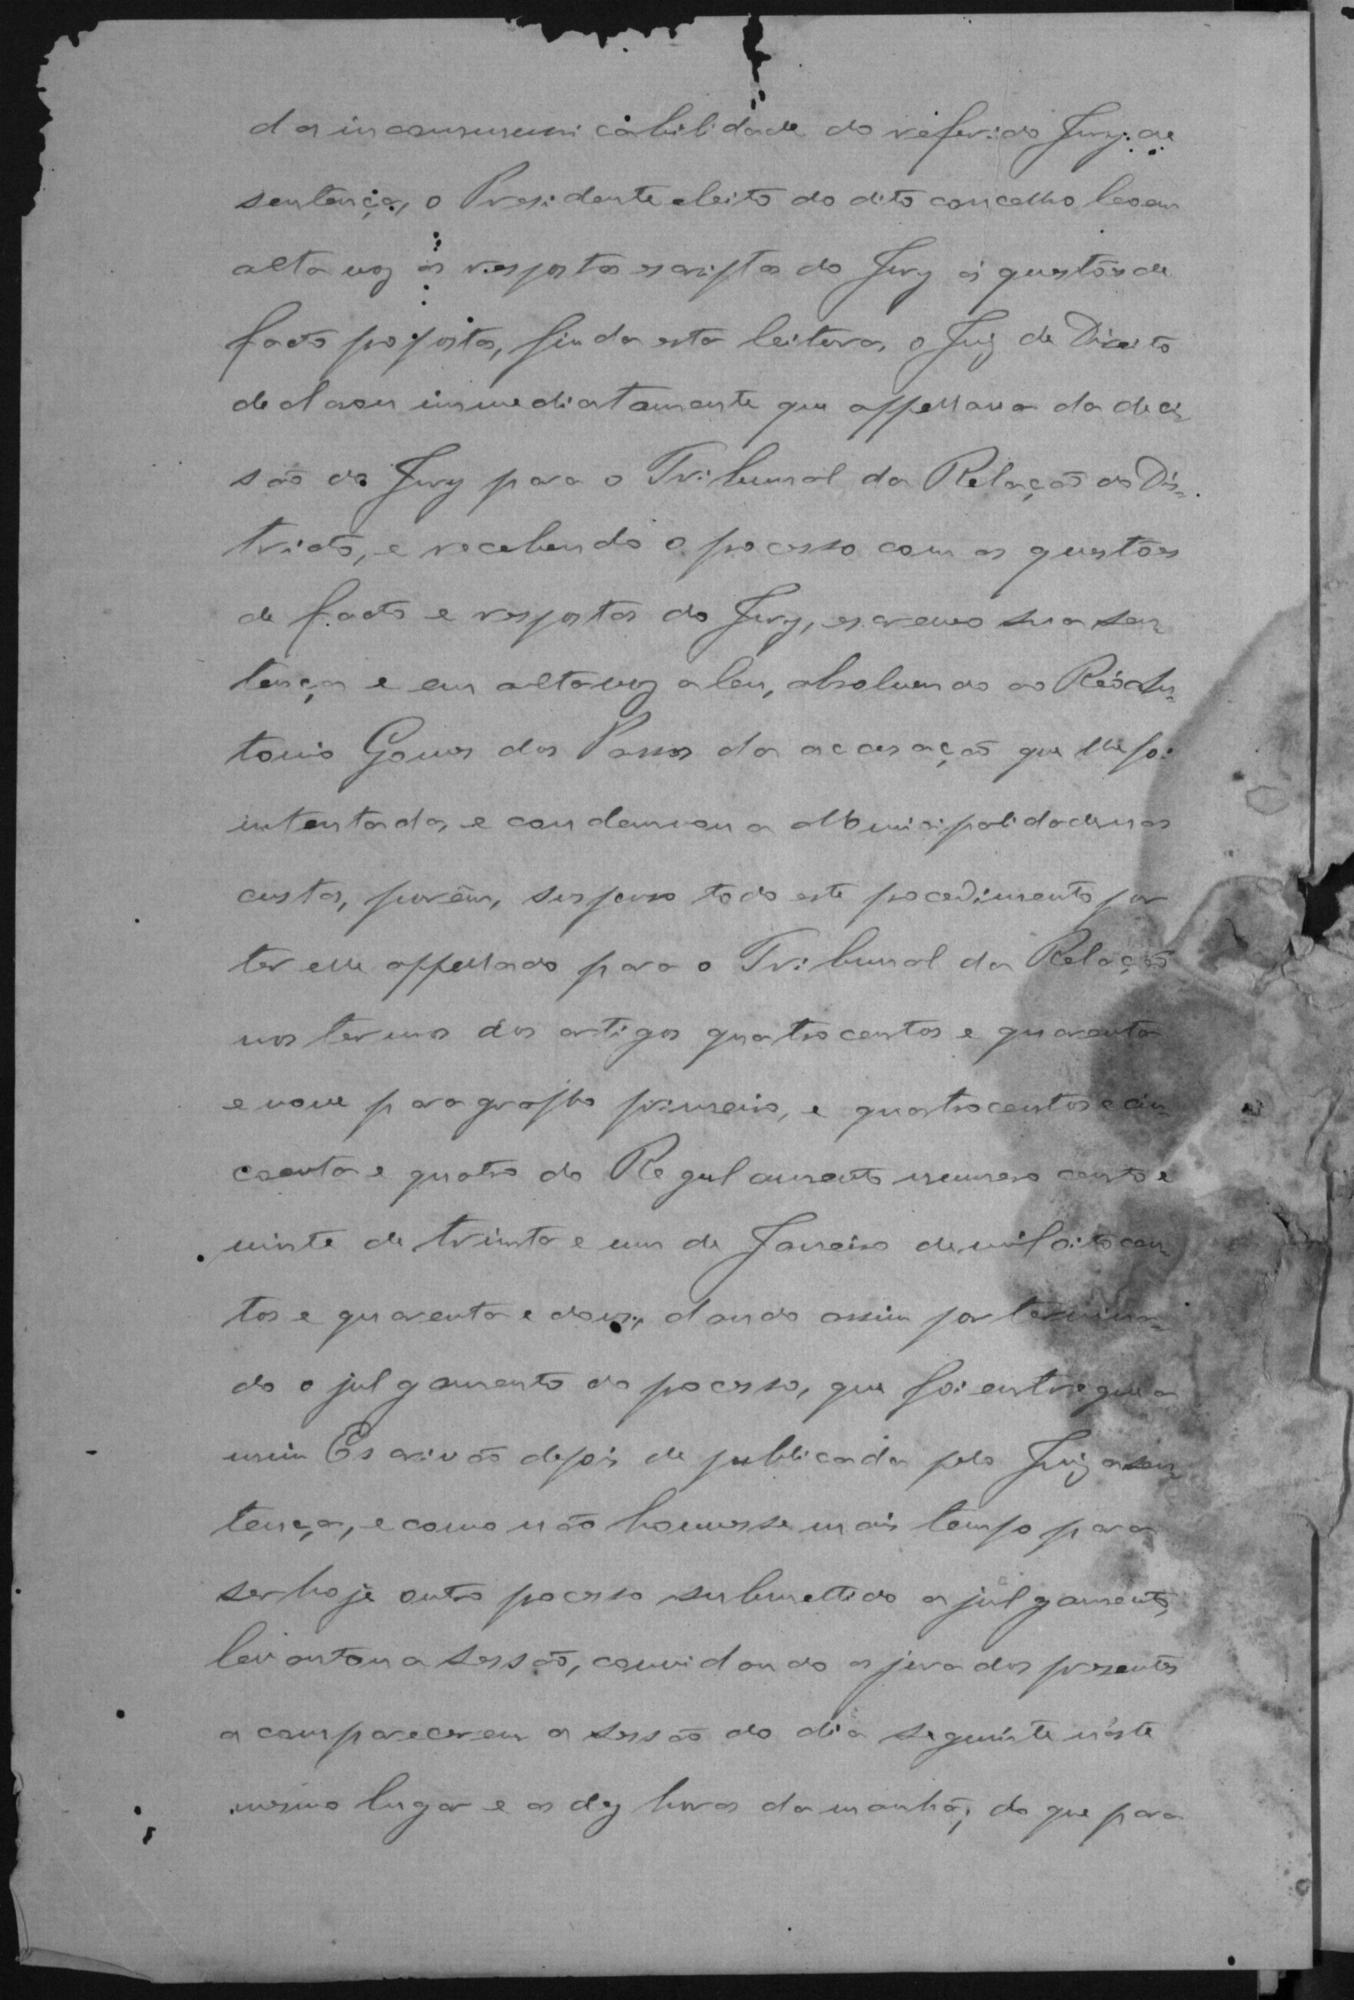 da incommunicabilidade do referido Jury de
sentença, o Presidente eleito do dito concelho leo em
alta voz as respostas escriptas do Jury ás questões de
facto propostas, finda esta leitura, o Juiz de Direito
declarou immediatamente que appellava da deci-
são do Jury para o Tribunal da Relação do Dis-
tricto, e recebendo o processo com as questões
de facto e respostas do Jury, escreveo sua sen-
tença e em alta voz a leu, absolvendo ao Réo An-
tonio Gomes dos Passos da accusação que lhe foi
intentada, e condemnou a Municipalidade nas
custas, porém, suspenso todo este procedimento por
ter elle appellado para o Tribunal da Relação
nos termos dos artigos quatrocentos e quarenta
e nove paragrapho primeiro, e quatrocentos e cin-
coenta e quatro do Regulamento numero cento e
vinte de trinta e um de Janeiro de mil oitocen-
tos e quarenta e dous, dando assim por termina-
do o julgamento do processo, que foi entregue a
mim Escrivão depois de publicada pelo Juiz a sen-
tença, e como não houvesse mais tempo para
ser hoje outro processo submettido a julgamento,
levantou a sessão, convidando os jurados presentes
a comparecerem a sessão do dia seguinte n'este
mesmo lugar e as dez horas da manhã; do que para